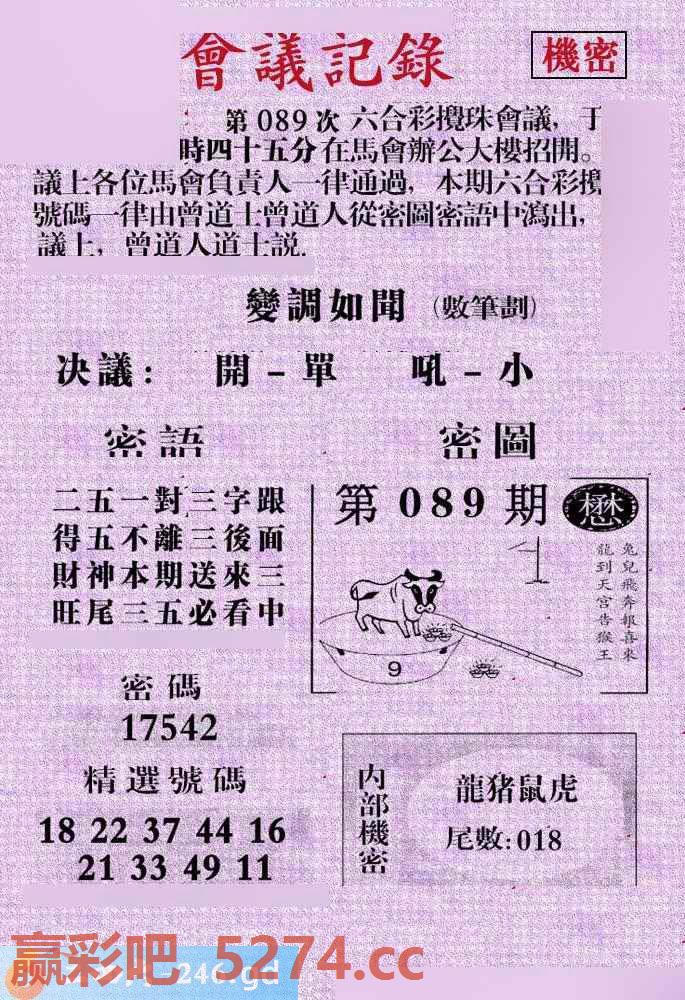 會議記錄
機密
第 089 次 六合彩攪珠會議，于
時四十五分在馬會辦公大樓招開。
議上各位馬會負責人一律通過，本期六合彩攪
號碼一律由曾道士曾道人從密圖密語中瀉出，
議上，曾道人道士説.
變調如聞（數筆劃）
决議： 開－單 吼－小
密語
二五一對三字跟
得五不離三後面
財神本期送來三
旺尾三五必看中
密圖
第 089 期
懋
兔兒飛奔報喜來
龍到天宮告猴王
9
密碼
17542
精選號碼
18 22 37 44 16
21 33 49 11
内部機密
龍猪鼠虎
尾數:018
赢彩吧 5274.cc